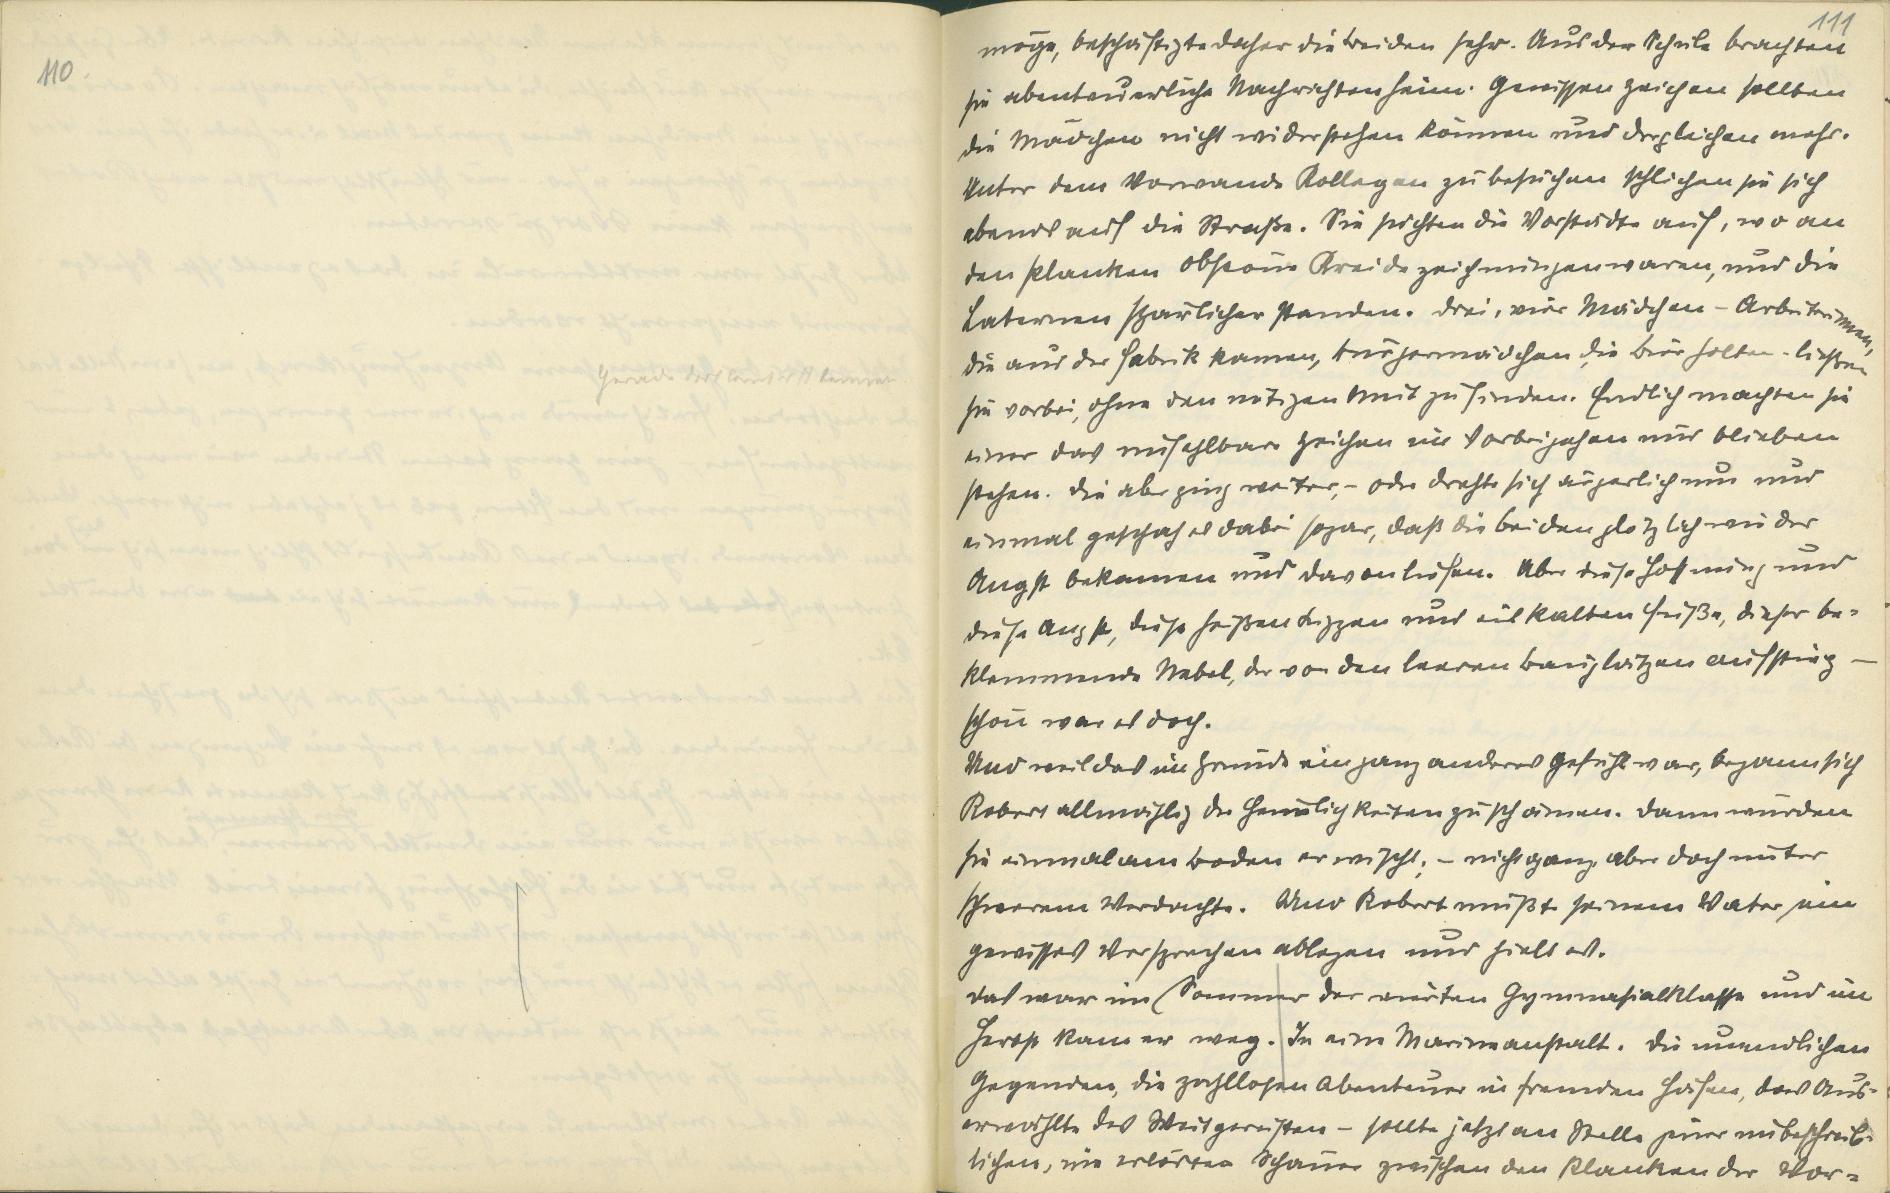 110
111
möge, beschäftigte daher die beiden sehr. Aus der Schule brachten
sie abenteuerliche Nachrichten heim. Gewissen Zeichen sollten
die Mädchen nicht widerstehen können und dergleichen mehr.
Unter dem Vorwande Kollegen zu besuchen schlichen sie sich
abends auf die Straße. Sie suchten die Vorstädte auf, wo an
den Planken obscöne Kreidezeichnungen waren, und die
Laternen spärlicher standen. Drei, vier Mädchen – Arbeiterinnen,
die aus der Fabrik kamen, Bürgermädchen, die Bier holten - ließen
sie vorbei, ohne den nötigen Mut zu finden. Endlich machten sie
einer das unfehlbare Zeichen im Vorbeigehen und blieben
stehen. Die aber ging weiter, – oder drehte sich ärgerlich um und
einmal geschah es dabei sogar, daß die beiden plötzlich wieder
Angst bekamen und davonliefen. Aber diese Hoffnung und
diese Angst, diese heißen Lippen und eiskalten Füße, dieser be-
klemmende Nebel, der von den leeren Bauplätzen aufstieg –
schön war es doch.
Und weil das im Grunde ein ganz anderes Gefühl war, begann sich
Robert allmählig der Heimlichkeiten zu schämen. Dann wurden
sie einmal am Boden erwischt, – nicht ganz aber doch unter
schwerem Verdachte. Und Robert mußte seinem Vater ein
gewisses Versprechen ablegen und hielt es.
Das war im Sommer der vierten Gymnasialklasse und im
Herbst kam er weg. In eine Marineanstalt. Die unendlichen
Gegenden, die zahllosen Abenteuer in fremden Häfen, das Aus-
erwählte des Weitgereisten – sollte jetzt an Stelle jener unbeschreib-
lichen, nie erlösten Schauer zwischen den Planken der Vor-